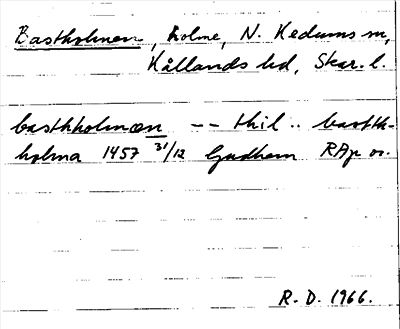 Bastholmen, holme, N. Kedums sn,
Kållands hd, Skar. l.
basthholmæn -- thil .. basth-
holma 1457 31/12 Gudhem RAp or.
R. D. 1966.